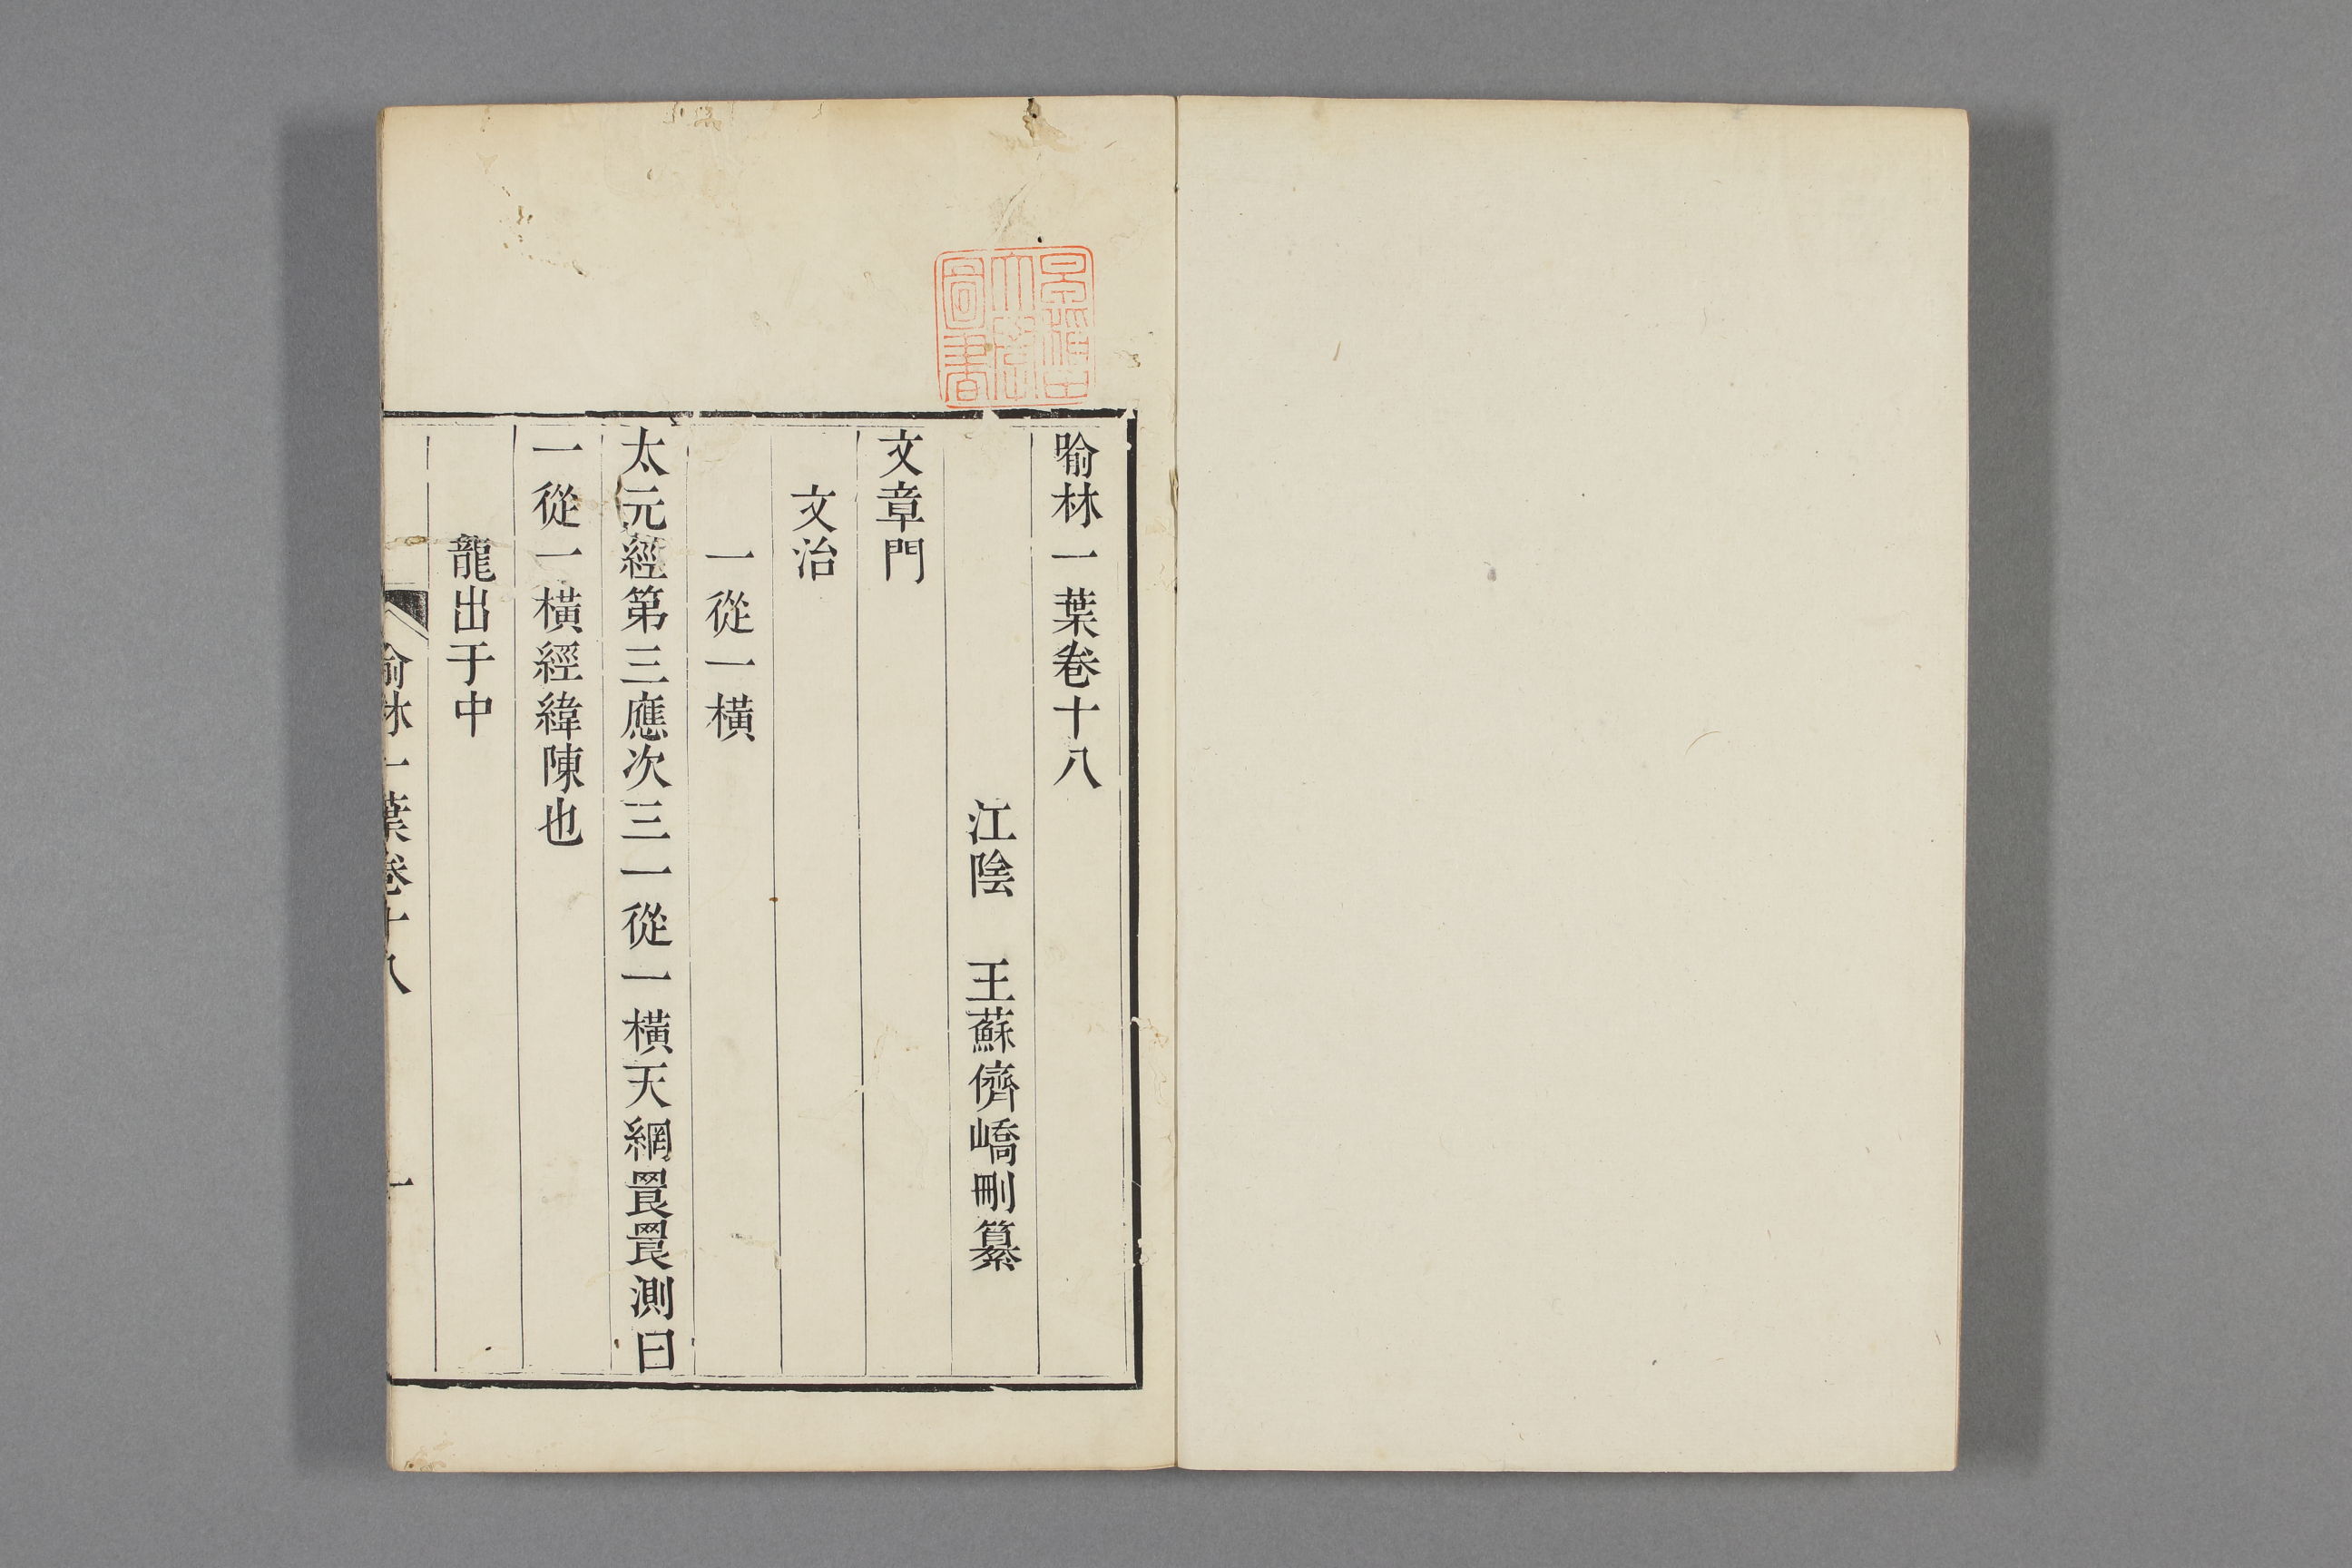 喻林一葉卷十八
江陰　王蘇儕嶠刪纂
文章門
文治
一從一橫
太元經第三應次三一從一橫天網罠罠測曰
一從一橫經緯陳也
龍出于中
喻林一葉卷十八　一
早稲田大學圖書